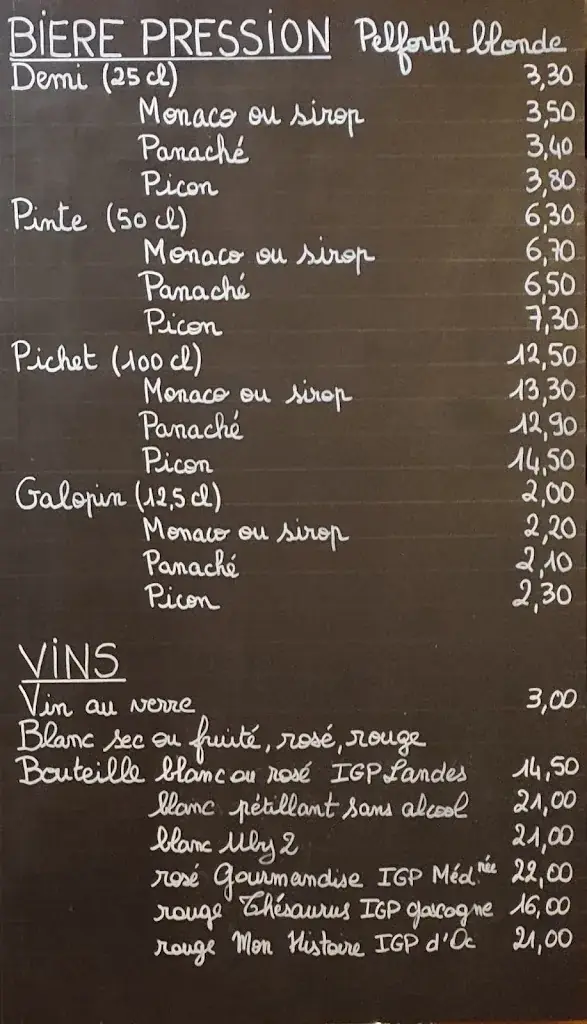 BIERE PRESSION Pelforth blonde
Demi (25 cl) 3,30
Monaco ou sirop 3,50
Panaché 3,40
Picon 3,80
Pinte (50 cl) 6,30
Monaco ou sirop 6,70
Panaché 6,50
Picon 7,30
Pichet (100 cl) 12,50
Monaco ou sirop 13,30
Panaché 12,90
Picon 14,50
Galopin (12,5 cl) 2,00
Monaco ou sirop 2,20
Panaché 2,10
Picon 2,30
VINS
Vin au verre 3,00
Blanc sec ou fruité, rosé, rouge
Bouteille blanc ou rosé IGP Landes 14,50
blanc pétillant sans alcool 21,00
blanc Uby 2 21,00
rosé Gourmandise IGP Méd.née 22,00
rouge Thésaurus IGP gascogne 16,00
rouge Mon Histoire IGP d'Oc 21,00